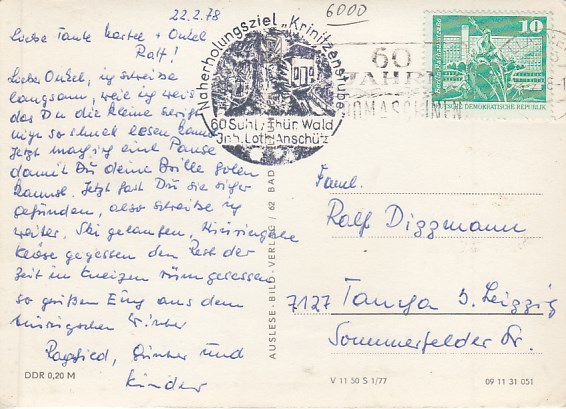 22.2.78
6000
Liebe Tante Kartel + Onkel
Ralf!
Lieber Onkel, ich schreibe
langsam, weil ich weis
das Du die kleine Schrift
nicht so schnell lesen kannst
Jetzt mach ich eine Pause
damit Du deine Brille holen
kannst. Jetzt hast Du sie sicher
gefunden, also schreibe ich
weiter. Ski gelaufen, Thüringische
Klöse gegessen den Rest der
Zeit in Kneipen rumgesessen
so grüßen Euch aus dem
thüringischen Winter
Günther und
Kinder
DDR 0,20 M
Naherholungsziel „Krinitzenstube"
60 Suhl / Thür. Wald
Inh. Loth. Anschütz
60
JAHRE
10
DEUTSCHE DEMOKRATISCHE REPUBLIK
AUSLESE-BILD-VERLAG / 62 BAD
Faml.
Ralf Dizzmann
7127 Taucha b. Leipzig
Sommerfelder Str.
V 11 50 S 1/77
09 11 31 051